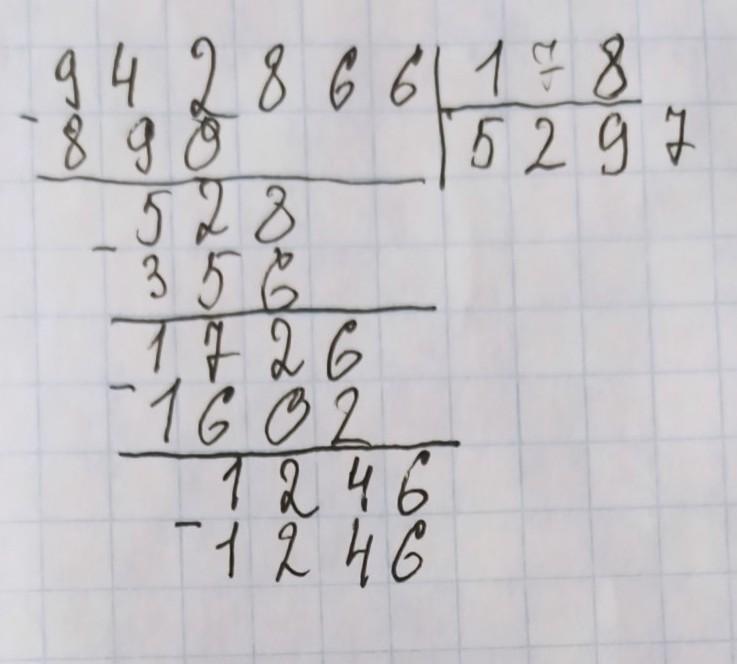 942866 178
- 890 5297
528
- 356
1726
- 1602
1246
- 1246